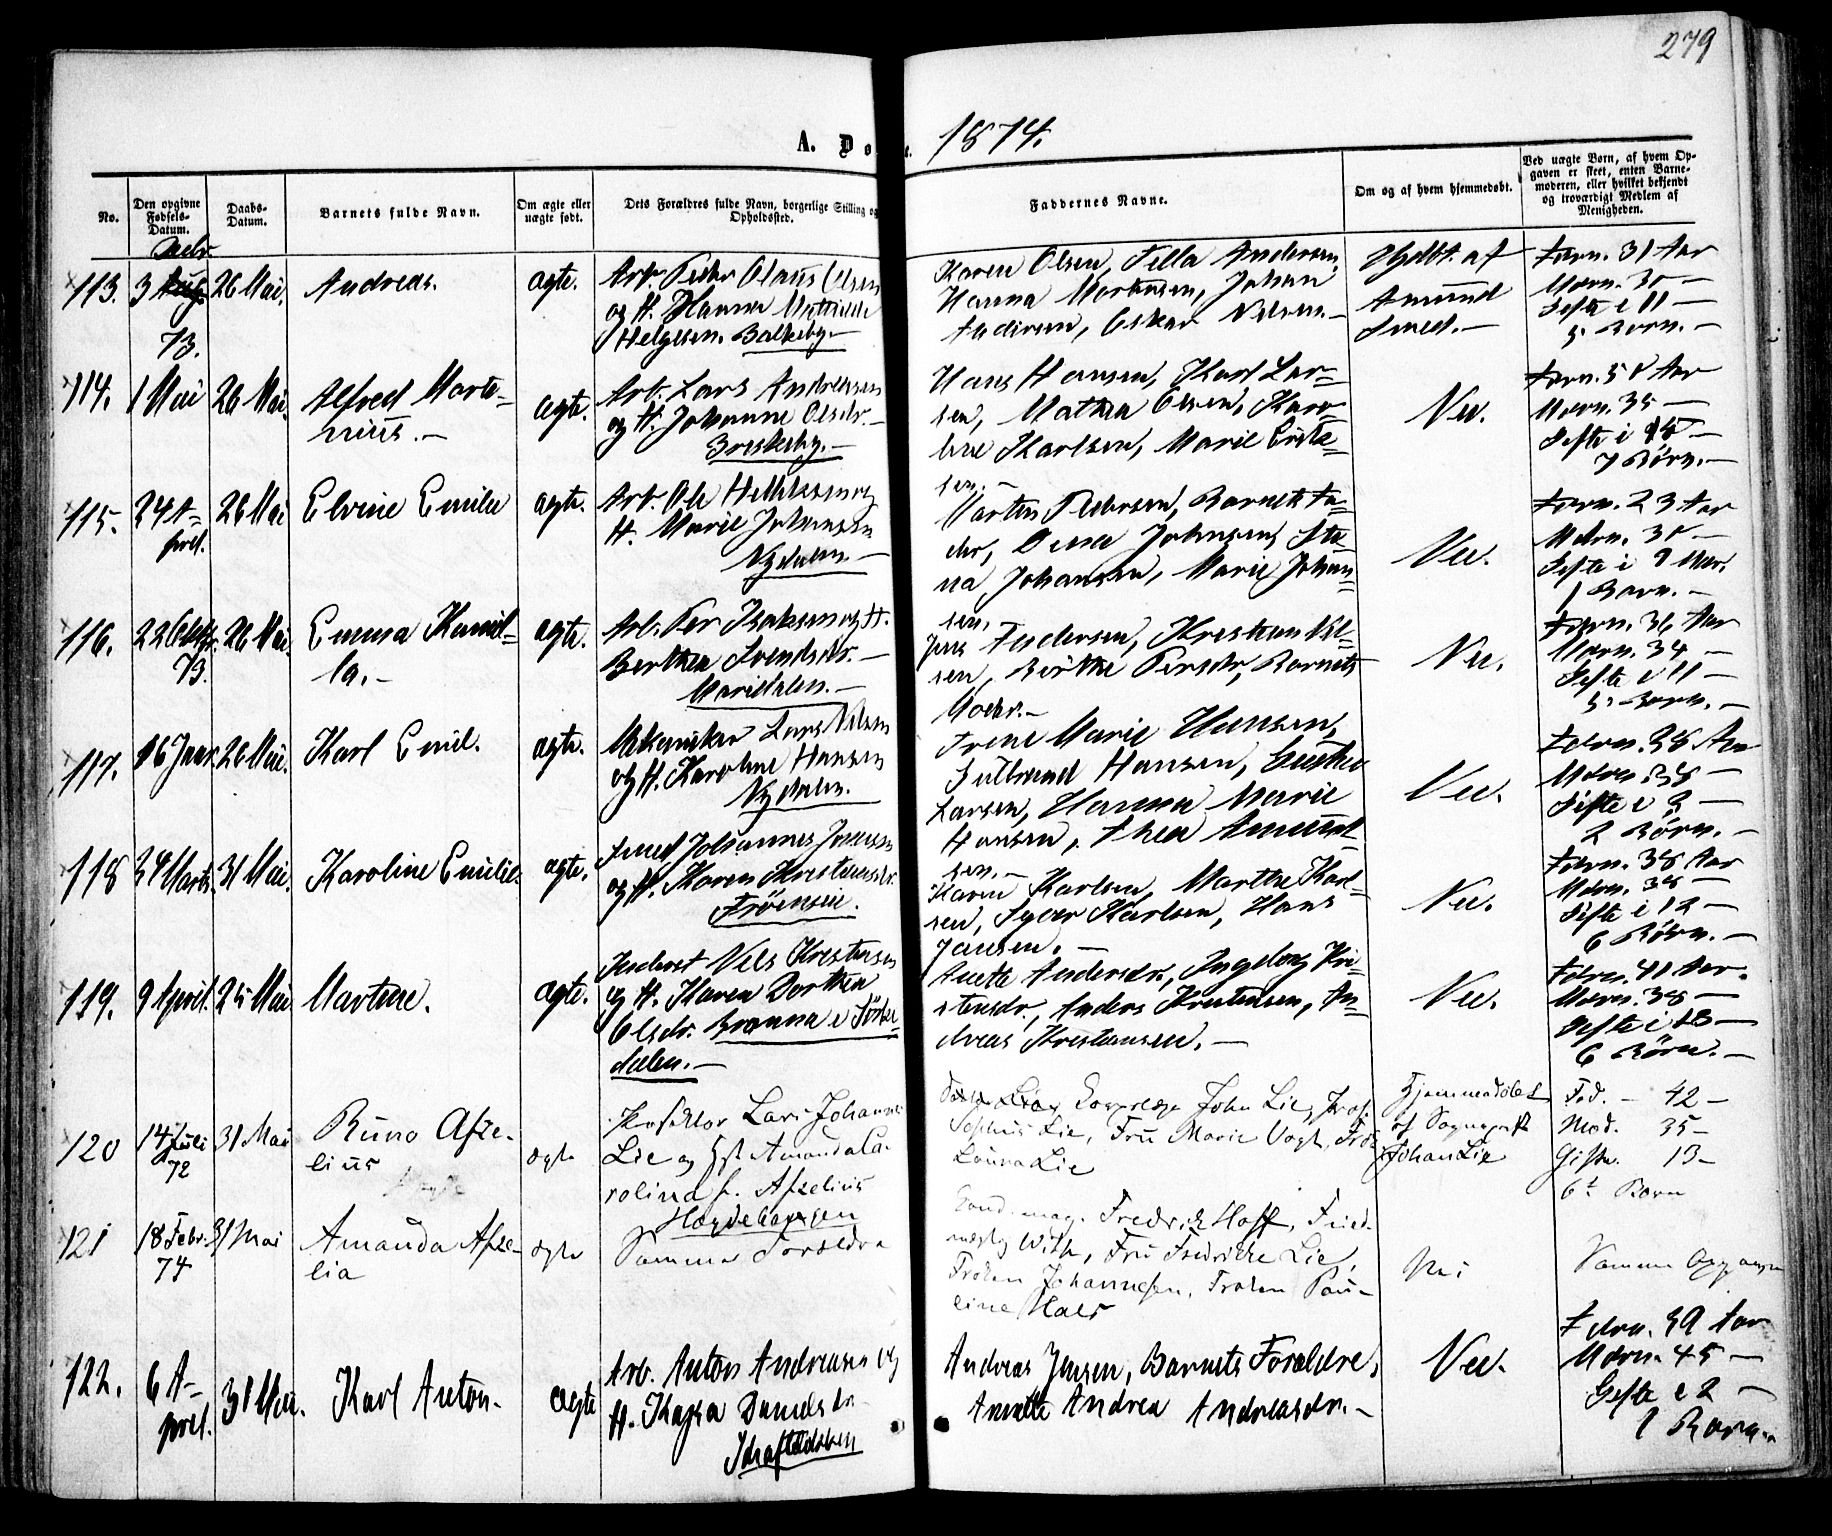 279
A. Do e. 1874.
No.
Den opgivne
Fødsels-
Datum.
Daabs-
Datum.
Barnets fulde Navn.
Om ægte eller
uægte født.
Dets Forældres fulde Navn, borgerlige Stilling og
Opholdssted.
Faddernes Navne.
Om og af hvem hjemmedøbt.
Ved uægte Børn, af hvem Op-
gaven er skeet, enten Barne-
moderen, eller hvilket bekjendt
og troværdigt Medlem af
Menigheden.
113. 3 73. 26 Mai. Andreas. ægte.
Arb. Peder Olaus Olsen
og H. Hanna Mathilde
Helgesen. Balkeby.
Karen Olsen, Andersen,
Hanna Mortensen, Johan
Andersen, Oskar Nilsen.
Hjdbt. af
Amund
Smed.
Færn. 31 Aar
Mærn. 30 —
Gifte i 11 —
5 Børn. —
114. 1 Mai 26 Mai. Alfred Marte-
nius. — ægte.
Arb. Lars Andreasen
og H. Johanne Olsdr. —
Briskeby. —
Hans Hansen, Karl Lar-
sen, Mathea Olsen, Karo-
line Karlsen, Marie
sen. —
Nei.
Færn. Aar
Mærn. 35 —
Gifte i —
7 Børn. —
115. 24 A-
pril. 26 Mai Elvine Emilie ægte.
Arb. Ole og
H. Marie Johansen
Nydalen. —
Morten Pedersen, Barnets Fa-
der, Johnsen, Sti-
na Johansen, Marie Johan-
sen,
Nei.
Færn. 23 Aar
Mærn. —
Gifte i Mdr.
1 Barn. —
116. 22 Oktbr.
73. 26 Mai. Emma Kamil-
la. — ægte.
Arb. Per Isaksen og H.
Berthea Svendsdr. —
Maridalen. —
Jens Andersen, Kristian Nil-
sen, Berthe Persdr, Barnets
Moder. —
Nei.
Færn. 36 Aar
Mærn. 34 —
Gifte i 11 —
5 Børn. —
117. 16 Janr. 26 Mai. Karl Emil. ægte.
Mekaniker Lars Nilsen
og H. Karoline Hansen
Nydalen.
Trene Marie Hansen,
Gulbrand Hansen, Gustav
Larsen, Hanna Marie
Hansen, Thea Amund-
sen. —
Nei.
Færn. 38 Aar
Mærn. 38 —
Gifte i 3 —
2 Børn. —
118 24 Marts. 31 Mai. Karoline Emilie. ægte.
Smed Johannes Jonsen
og H. Karen Kristiansdr.
Frøensvei.
Karen Karlsen, Marthe Karl-
sen, Syver Karlsen, Hans
Jansen. —
Nei.
Færn. 38 Aar
Mærn. 38 —
Gifte i 12 —
6 Børn. —
119. 9 April. 25 Mai Martine. ægte.
Inderst Nils Kristensen
og H. Karen Dorthea
Olsdr. Brænna i Sørke-
dalen. —
Anette Andersdr., Ingeborg Kri-
stensdr., Anders Kristensen, An-
dreas Kristiansen. —
Nei.
Færn. 41 Aar.
Mærn. 38 —
Gifte i 13 —
6 Børn. —
120 14 Juli
72 31 Mai Runo Afze-
lius ægte
Lars Johannes
Lie og Hst Amanda Ca-
rolina f. Afzelius
Hægdehaugen
John Lie, Prof.
Sophus Lie, Fru Marie Vogt, Frøk
Laura Lie
Hjemmedøbt
af Sognepr
Johan Lie
Fad. — 42 —
Mod. 35 —
Gifte. 13 —
6t Barn
121 18 Febr.
74 31 Mai Amanda Afze-
lia ægte
Samme Forældre
Fredrik Hoff,
With, Fru Fredrikke Lie,
Frøken Johannesen, Frøken Pau-
line Hals
Nei
Samme Opgaver
122. 6 A-
pril. 31 Mai. Karl Anton. ægte
Arb. Anton Andreasen og
H. Kajsa Danielsdr.
Andreas Jensen, Barnets Forældre,
Anette Andrea Andreasdr. —
Nei.
Færn. 39 Aar
Mærn. 45 —
Gifte i 2 —
1 Barn. —